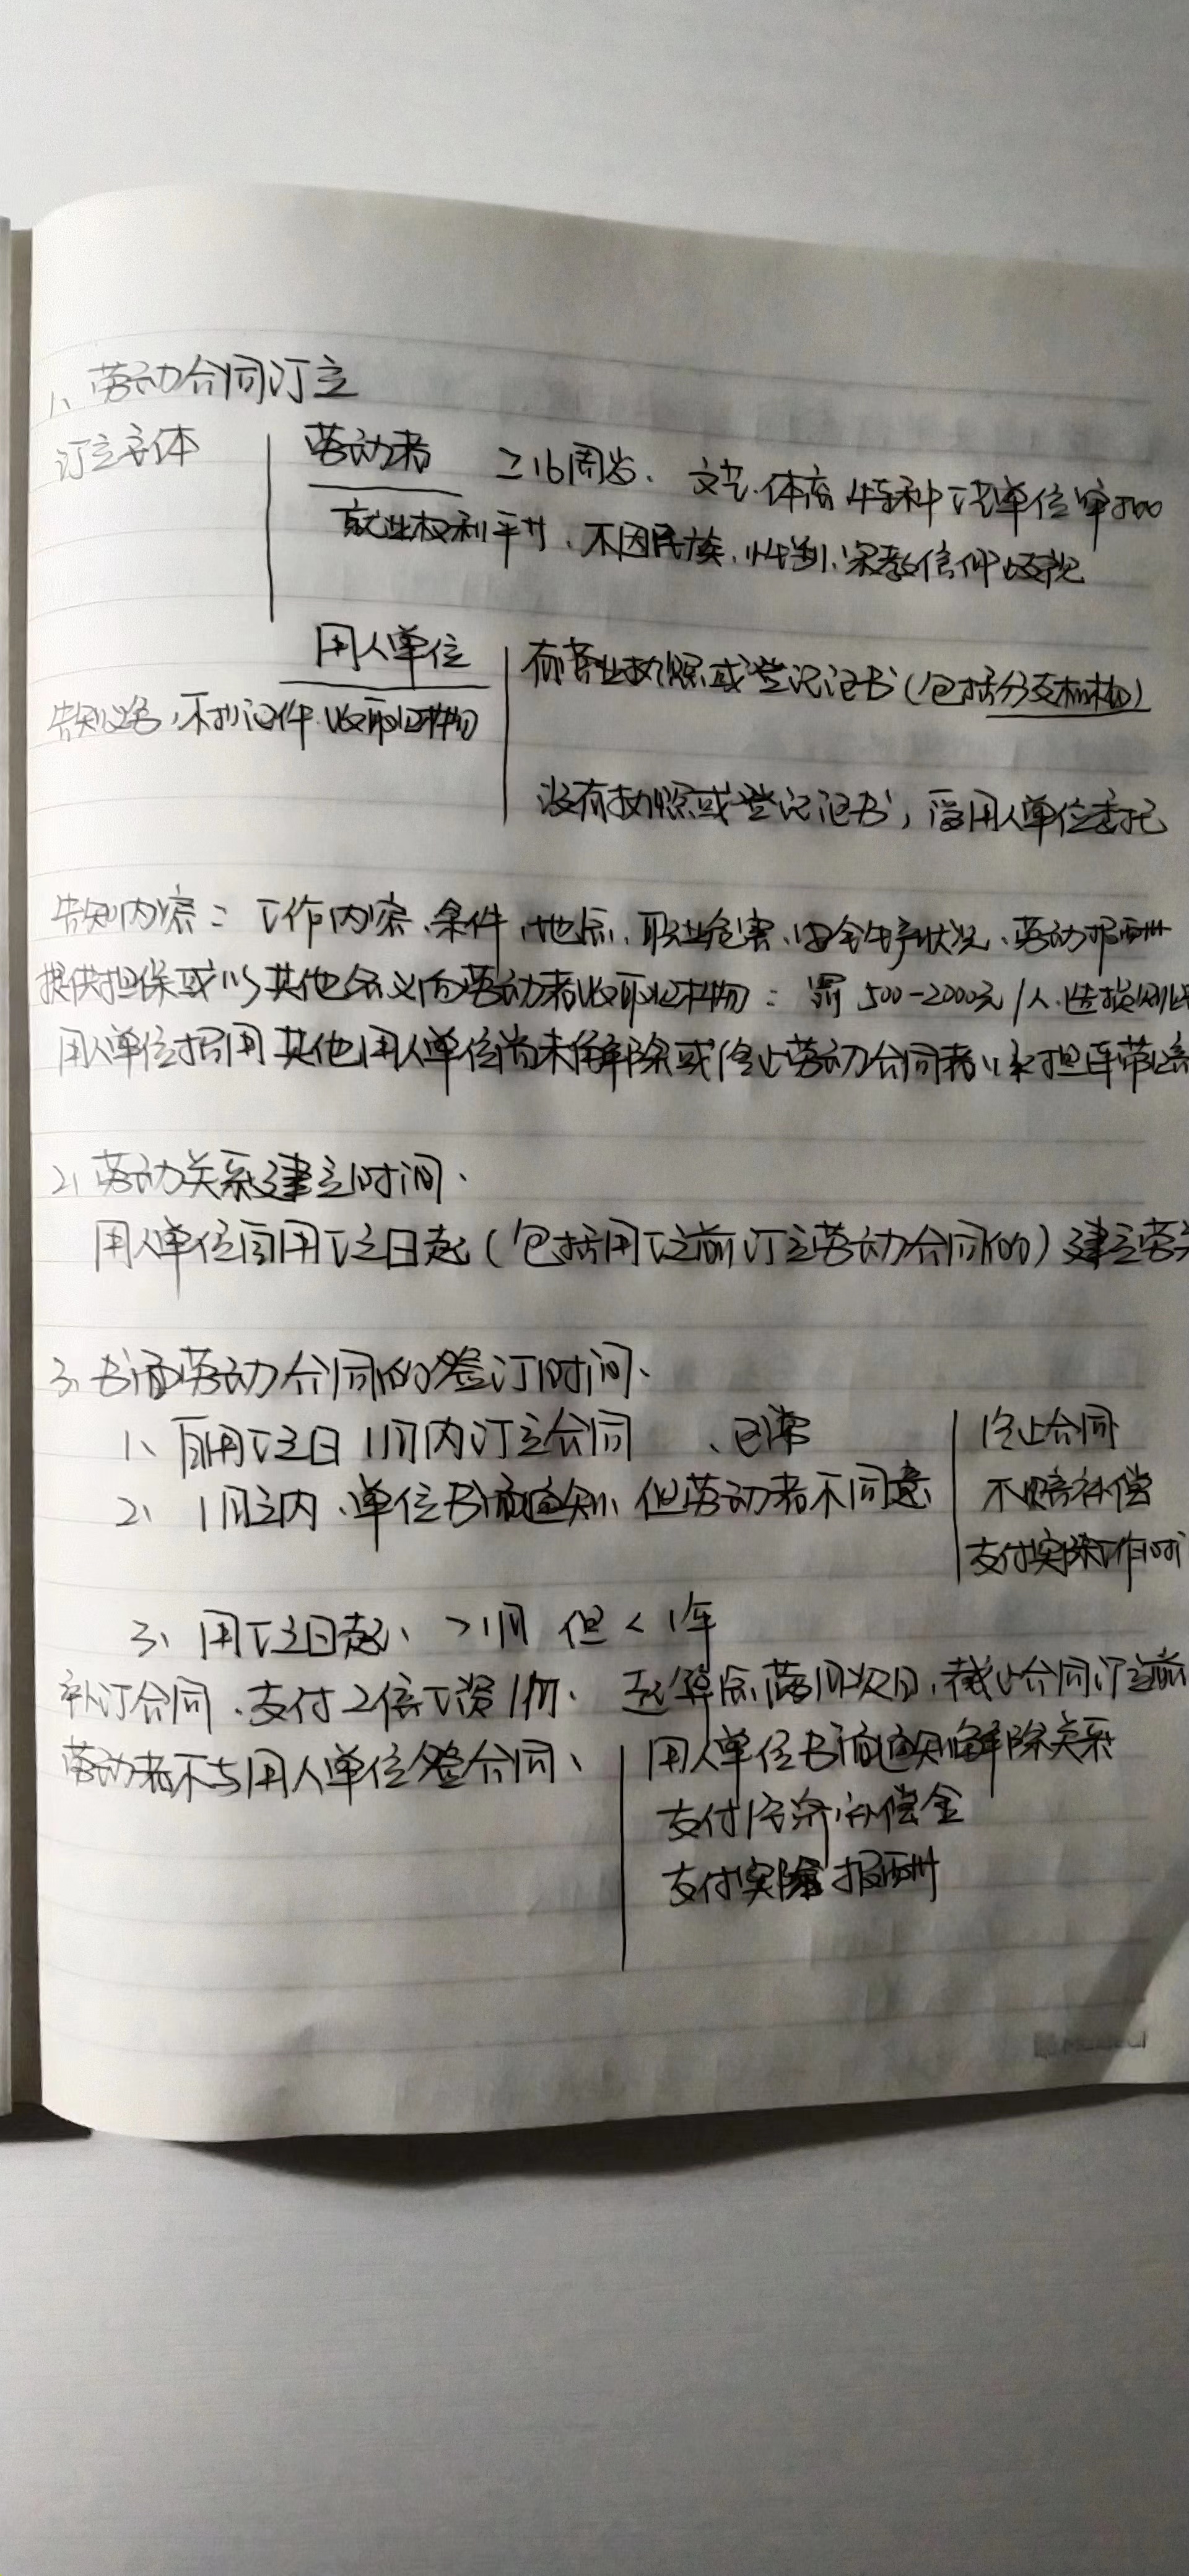 1、劳动合同订立
订立主体
劳动者 ≥16周岁、文艺.体育.特种工艺单位审批
就业权利平等、不因民族、性别、宗教信仰歧视
用人单位
有营业执照或登记证书(包括分支机构)
告知义务,不扣证件.收取财物
没有执照或登记证书,受用人单位委托
告知内容:工作内容、条件,地点,职业危害、安全生产状况、劳动报酬
提供担保或以其他名义向劳动者收取财物:罚500-2000元/人.造损则
用人单位招用其他用人单位尚未解除或终止劳动合同者、承担连带
2、劳动关系建立时间、
用人单位自用工之日起(包括用工之前订立劳动合同的)建立劳
3、书面劳动合同的签订时间、
1、自用工之日1月内订立合同 、正常
2、1月之内、单位书面通知、但劳动者不同意
终止合同
不赔补偿
支付实际工作时
3、用工之日起、>1月 但<1年
补订合同、支付2倍工资/月、起算点:满1月次日,截止合同订立前
劳动者不与用人单位签合同、
用人单位书面通知解除关系
支付经济补偿金
支付实际报酬